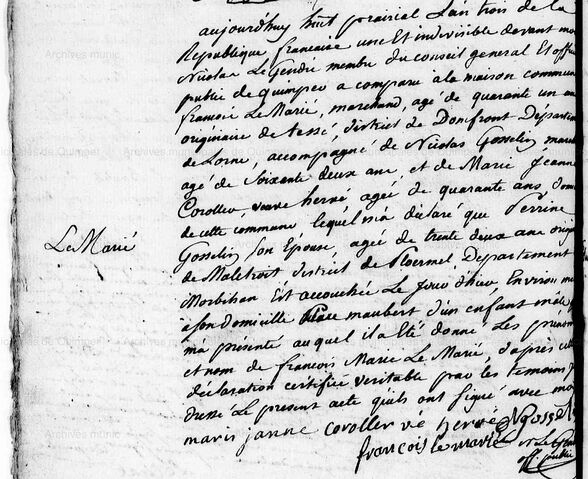 aujourdhuy huit prairial L'an trois de la
Republique francaise une Et indivisible devant moy
Nicolas Le Gendre membre du conseil general Et off
public de quimper a comparu a la maison commune
francois Le Marié, marchand, agé de quarante un an
originaire de tessé, district de Domfront Départem
de Lorne, accompagné de Nicolas Gosselin, march
agé de Soixante deux ans, et de Marie Jeanne
Corollew, veuve hervé agée de quarante ans, dom
de cette commune lequel m'a déclaré que Perrine
Le Marié
Gosselin Son Epouse, agée de trente deux ans orig
de Maletroit district de Ploermel, Departement
Morbihan Est accouchée Le jour d'hier, Environ
a son domicille Place maubert d'un enfant mâle
ma présenté au quel il a Eté donné Les prénom
et nom de francois Marie Le Marié, d'après cette
déclaration certifiée veritable par les temoins j
dressé Le present acte qu'ils ont signé avec moy
marie janne coroller vé hervé N gosselin
francois le marié N Le Gen
off. public
Archives munic